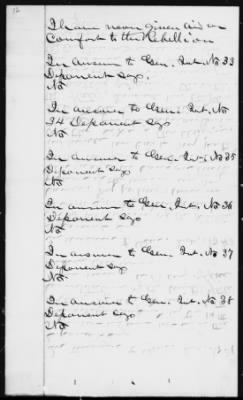 12
I have never given aid or
Comfort to the Rebellion
In answer to Gen. Int. No 33
Deponent says.
No
In answer to Gen. Int. No
34 Deponent says
No
In answer to Gen. Int. No 35
Deponent says
No
In answer to Gen. Int. No 36
Deponent says
No
In answer to Gen. Int. No 37
Deponent says
No.
In answer to Gen. Int. No 38
Deponent says
No